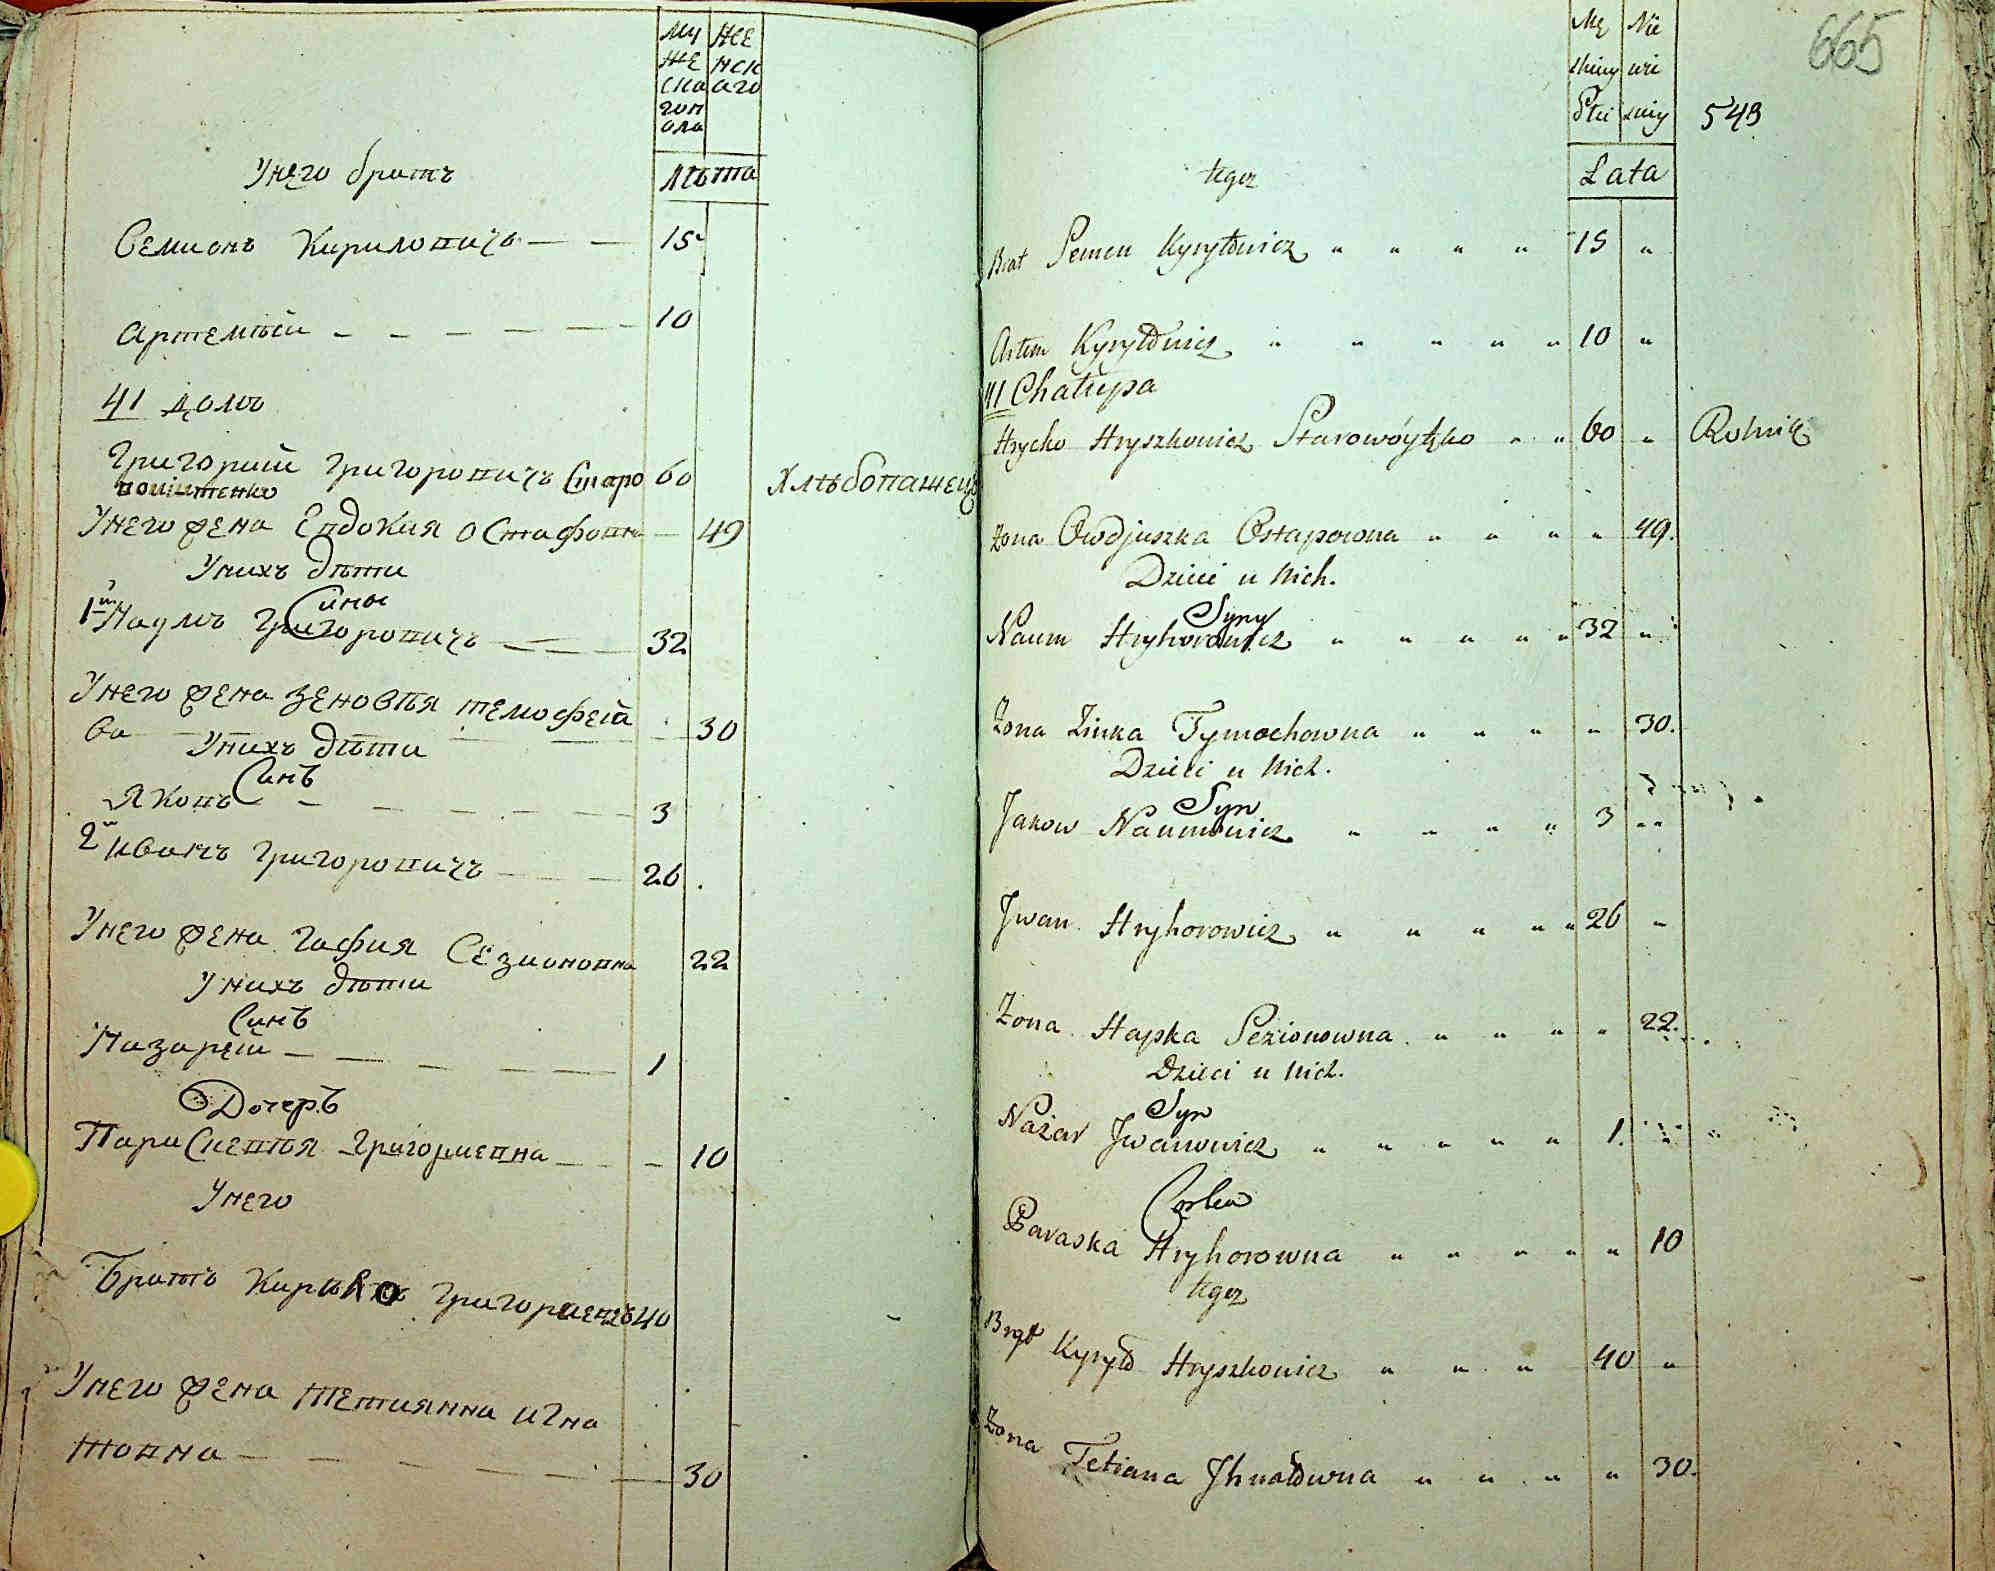 Му
же
ска
гоп
ола
Же
нск
аго
Лѣта
Унего братъ
Семионъ Кириловичъ — — 15
Артемѣй — — — — — — 10
41 домъ
Григорий Григоровичъ Старо 60 Хлѣбопашецъ
войтенко
Унего жена Евдокия Остафовна — 49
Унихъ дѣти
Сины
1й Наумъ Григоровичъ — — — 32
Унего жена Зеновѣя Темофеіа
ва — — — — — 30
Унихъ дѣти
Синъ
Яковъ — — — — — — 3
2й Иванъ Григоровичъ — — — — 26
Унего жена Гафия Сезионовна 22
Унихъ дѣти
Синъ
Назарѣй — — — — — — 1
Дочеръ
Парискевѣя Григориевна — — — 10
Унего
Братъ Кирило Григориевичъ 40
Унего жена Тетиянна Игна
товна — — — — — — 30
Mę
skiey
Płci
Nie
wie
sciey
665
543
Lata
tegoz
Brat Semen Kyryłowicz " " " " 15 "
Artem Kyryłowicz " " " " " 10 "
41 Chałupa
Hrycko Hryszkowicz Starowóytko " " 60 " Rolnik
Żona Owdjuszka Ostapowna " " " " 49.
Dzieci u Nich.
Syny
Naum Hryhorowicz " " " " " 32 "
Żona Zinka Tymochowna " " " " 30.
Dzieci u Nich.
Syn
Jakow Naumowicz " " " " 3 "
Jwan Hryhorowicz " " " " " 26 "
Żona Hapka Sezionowna " " " " 22.
Dzieci u Nich.
Syn
Nazar Jwanowicz " " " " " 1. "
Corka
Paraska Hryhorowna " " " " " 10
tegoz
Brat Kyryło Hryszkowicz " " " 40 "
Żona Tetiana Jhnatowna " " " " 30.